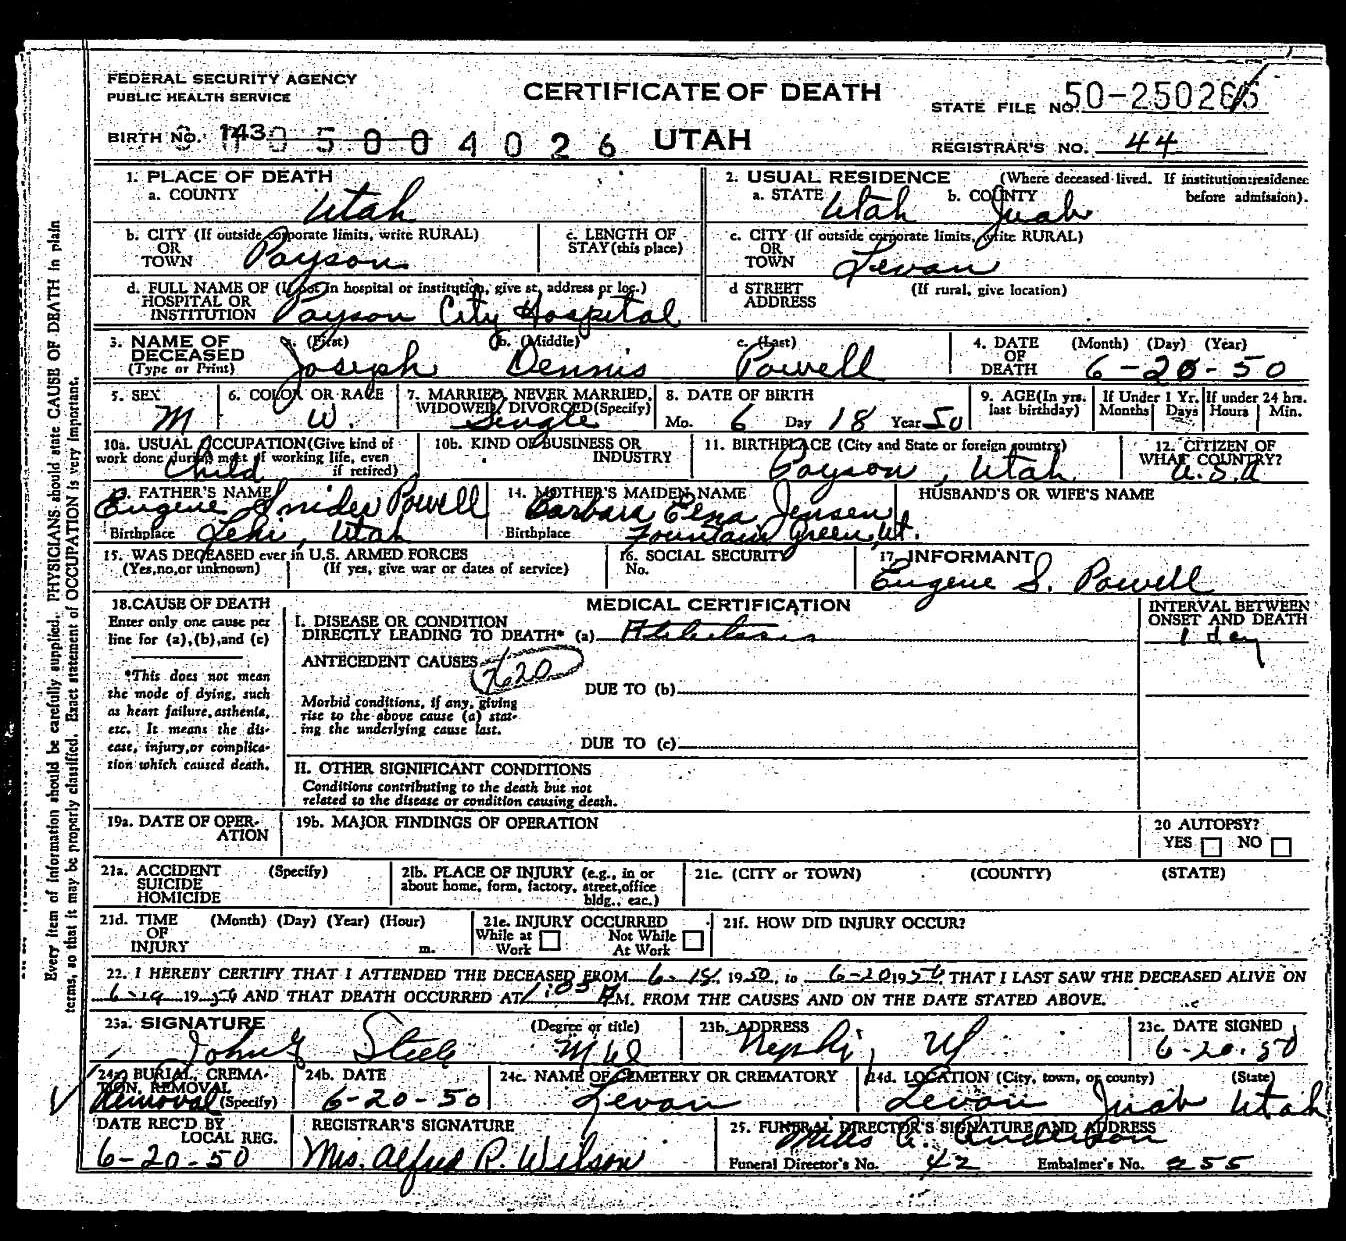 FEDERAL SECURITY AGENCY
PUBLIC HEALTH SERVICE
CERTIFICATE OF DEATH
STATE FILE NO. 50-250265
BIRTH NO. 143 05004026
UTAH
REGISTRAR'S NO. 44
1. PLACE OF DEATH
a. COUNTY Utah
2. USUAL RESIDENCE (Where deceased lived. If institution: residence before admission).
a. STATE Utah b. COUNTY Juab
b. CITY (If outside corporate limits, write RURAL)
OR
TOWN Payson
c. LENGTH OF
STAY (this place)
c. CITY (If outside corporate limits, write RURAL)
OR
TOWN Levan
d. FULL NAME OF (If not in hospital or institution, give st. address or loc.)
HOSPITAL OR
INSTITUTION Payson City Hospital
d STREET (If rural, give location)
ADDRESS
3. NAME OF DECEASED (Type or Print)
a. (First) Joseph b. (Middle) Dennis c. (Last) Powell
4. DATE OF DEATH (Month) (Day) (Year)
6-20-50
5. SEX M
6. COLOR OR RACE W.
7. MARRIED, NEVER MARRIED, WIDOWED, DIVORCED (Specify) Single
8. DATE OF BIRTH
Mo. 6 Day 18 Year 50
9. AGE (In yrs. last birthday)
If Under 1 Yr. Months Days
If under 24 hrs. Hours Min.
10a. USUAL OCCUPATION (Give kind of work done during most of working life, even if retired) Child
10b. KIND OF BUSINESS OR INDUSTRY
11. BIRTHPLACE (City and State or foreign country) Payson, Utah
12. CITIZEN OF WHAT COUNTRY? U.S.A
13. FATHER'S NAME Eugene Snider Powell
Birthplace Lehi, Utah
14. MOTHER'S MAIDEN NAME Barbara Jensen
Birthplace Fountain Green, Ut.
HUSBAND'S OR WIFE'S NAME
15. WAS DECEASED ever in U.S. ARMED FORCES
(Yes, no, or unknown) (If yes, give war or dates of service)
16. SOCIAL SECURITY No.
17. INFORMANT Eugene S. Powell
18. CAUSE OF DEATH
Enter only one cause per line for (a), (b), and (c)
*This does not mean the mode of dying, such as heart failure, asthenia, etc. It means the disease, injury, or complication which caused death.
MEDICAL CERTIFICATION
INTERVAL BETWEEN ONSET AND DEATH
I. DISEASE OR CONDITION
DIRECTLY LEADING TO DEATH* (a) 1 day
ANTECEDENT CAUSES 7620
DUE TO (b)
Morbid conditions, if any, giving rise to the above cause (a) stating the underlying cause last.
DUE TO (c)
II. OTHER SIGNIFICANT CONDITIONS
Conditions contributing to the death but not related to the disease or condition causing death.
19a. DATE OF OPERATION
19b. MAJOR FINDINGS OF OPERATION
20 AUTOPSY?
YES NO
21a. ACCIDENT (Specify)
SUICIDE
HOMICIDE
21b. PLACE OF INJURY (e.g., in or about home, form, factory, street, office bldg., eac.)
21c. (CITY or TOWN) (COUNTY) (STATE)
21d. TIME (Month) (Day) (Year) (Hour)
OF
INJURY m.
21e. INJURY OCCURRED
While at Work Not While At Work
21f. HOW DID INJURY OCCUR?
22. I HEREBY CERTIFY THAT I ATTENDED THE DECEASED FROM 6-18, 1950, to 6-20 1950, THAT I LAST SAW THE DECEASED ALIVE ON
6-19 1950 AND THAT DEATH OCCURRED AT 1:05 A M. FROM THE CAUSES AND ON THE DATE STATED ABOVE.
23a. SIGNATURE (Degree or title)
John G Steele M D
23b. ADDRESS Nephi, Ut
23c. DATE SIGNED 6-20-50
24a. BURIAL, CREMATION, REMOVAL (Specify) Removal
24b. DATE 6-20-50
24c. NAME OF CEMETERY OR CREMATORY Levan
24d. LOCATION (City, town, or county) (State)
Levan Juab Utah
DATE REC'D BY LOCAL REG. 6-20-50
REGISTRAR'S SIGNATURE Mrs. Alfred P. Wilson
25. FUNERAL DIRECTOR'S SIGNATURE AND ADDRESS Anderson
Funeral Director's No. 42 Embalmer's No. 255
Every item of information should be carefully supplied. PHYSICIANS should state CAUSE OF DEATH in plain
terms, so that it may be properly classified. Exact statement of OCCUPATION is very important.